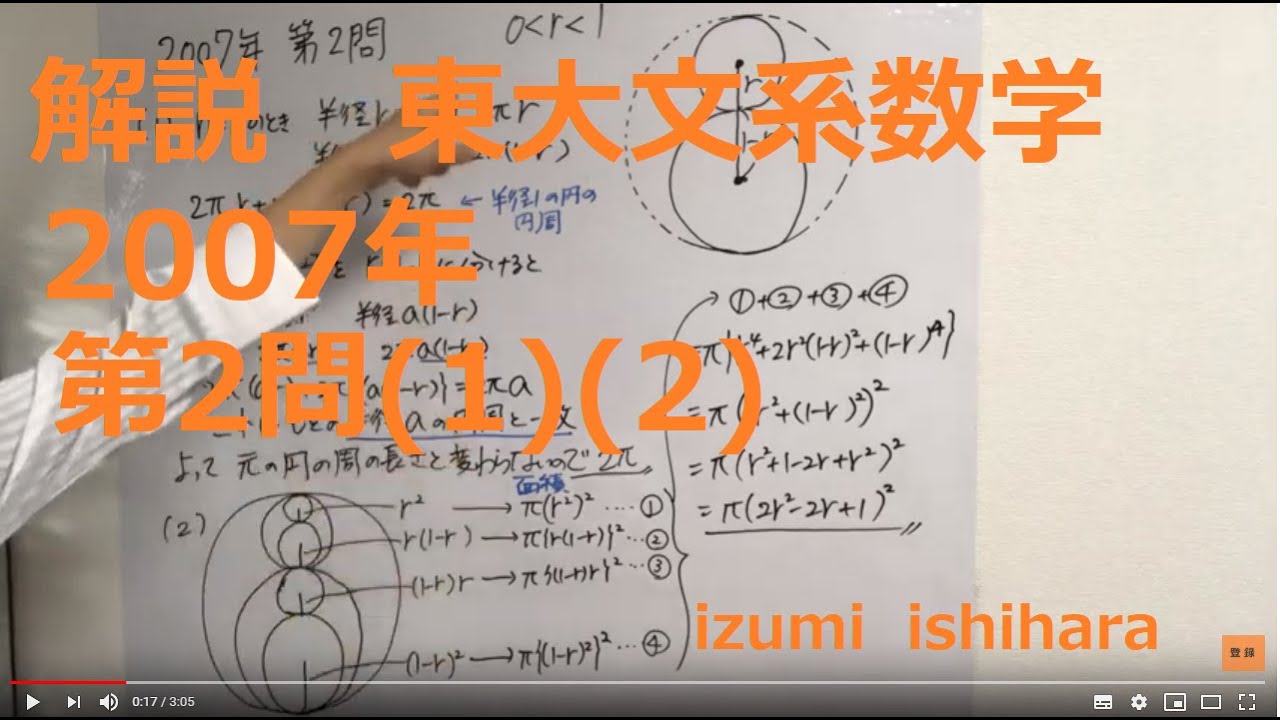 2007年 第2問
0<r<1
解説 東大文系数学
のとき 半径r πr
r)
2007年
2πr+ )=2π ← 半径1の円の
円周
r
1-r
けると
半径a(1-r)
第2問(1)(2)
a(1-r)
}=2πa
半径aの円周と一致
よって 元の円の周の長さと変わらないので 2π
(2)
面積
r² → π(r²)² ‥‥①
r(1-r) → π{r(1-r)}² ‥②
(1-r)r → π{(1-r)r}² ‥③
(1-r)² → π{(1-r)²}² ‥④
①+②+③+④
=π{r⁴+2r²(1-r)²+(1-r)⁴}
=π(r²+(1-r)²)²
=π(r²+1-2r+r²)²
=π(2r²-2r+1)²
izumi ishihara
登録
0:17 / 3:05